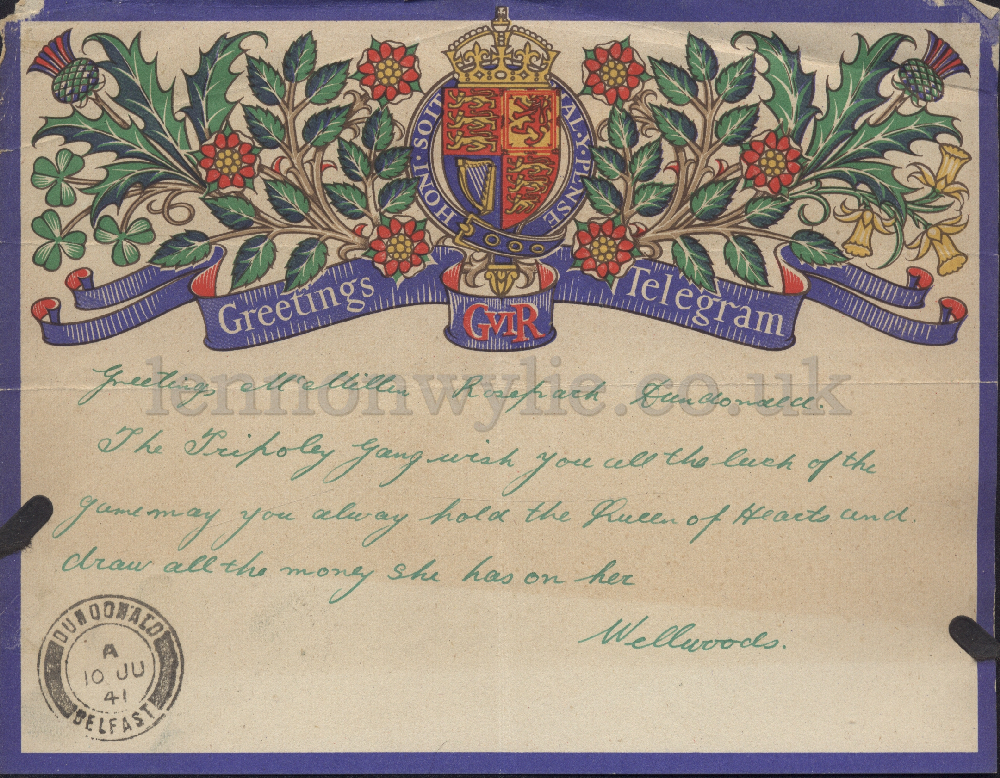 HONI · SOIT
MAL · Y · PENSE
Greetings Telegram
GVIR
lennonwylie.co.uk
Greetings McMillen Rosepark Dundonald.
The Tripoley Gang wish you all the luck of the
game may you alway hold the Queen of Hearts and
draw all the money she has on her
Wellwoods.
DUNDONALD
A
10 JU
41
BELFAST